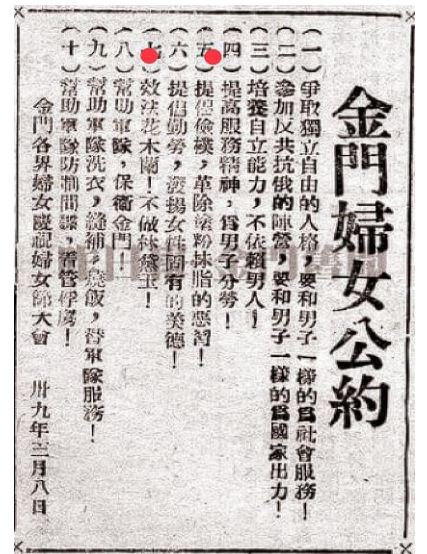 金門婦女公約
(一)爭取獨立自由的人格,要和男子一樣的爲社會服務!
(二)參加反共抗俄的陣營,要和男子一樣的爲國家出力!
(三)培養自立能力,不依賴男人!
(四)提高服務精神,爲男子分勞!
(五)提倡儉樸,革除塗粉抹脂的惡習!
(六)提倡勤勞,發揚女性固有的美德!
(七)效法花木蘭!不做林黛玉!
(八)幫助軍隊,保衛金門!
(九)幫助軍隊洗衣,縫補,燒飯,替軍隊服務!
(十)幫助軍隊防諜,看管俘虜!
金門各界婦女慶祝婦女節大會 卅九年三月八日